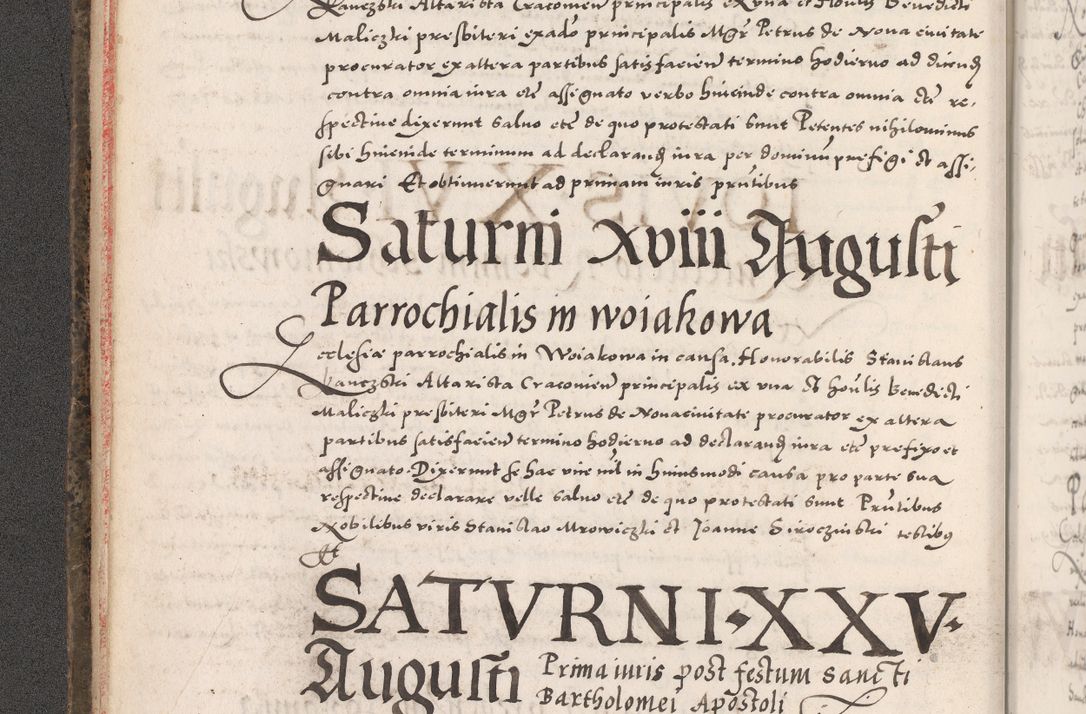 Lanczski Altarista Cracovien̄ principalis ex una et Honlis Benedicti
Maliczki presbiteri ex ad͡o principalis Mgr̄ Petrus de Nova civitate
procurator ex altera partibus satisfacien̄ termino hodierno ad dicend
contra omnia iura etc̄ assignato verbo hincinde contra omnia etc̄ re-
spective dixerunt salvo etc̄ de quo protestati sunt Petentes nihilominus
sibi hincinde terminum ad declarand iura per dominū prefigi et assi-
gnari Et obtinuerunt ad primam iuris prn̄tibus
Saturni xviii Augusti
Parrochialis in woiakowa
Ecclesiæ parrochialis in Woiakowa in causa. Honorabilis Stanislaus
Lanczski Altarista Cracovien̄ principalis ex una et hon̄lis Benedicti
Maliczki presbiteri Mgr̄ Petrus de Nova civitate procurator ex altera
partibus satisfacien̄ termino hodierno ad declarand iura etc̄ prefixo et
assignato. Dixerunt se hac vice nil in huiusmodi causa pro parte sua
respective declarare velle salvo etc̄ de quo protestati sunt Prn̄tibus
Nobilibus viris Stanislao Mrowiczki et Joanne Siroczinski testibꝰ
SATVRNI·XXV·
Augusti Prima iuris post festum sancti
Bartholomei Apostoli